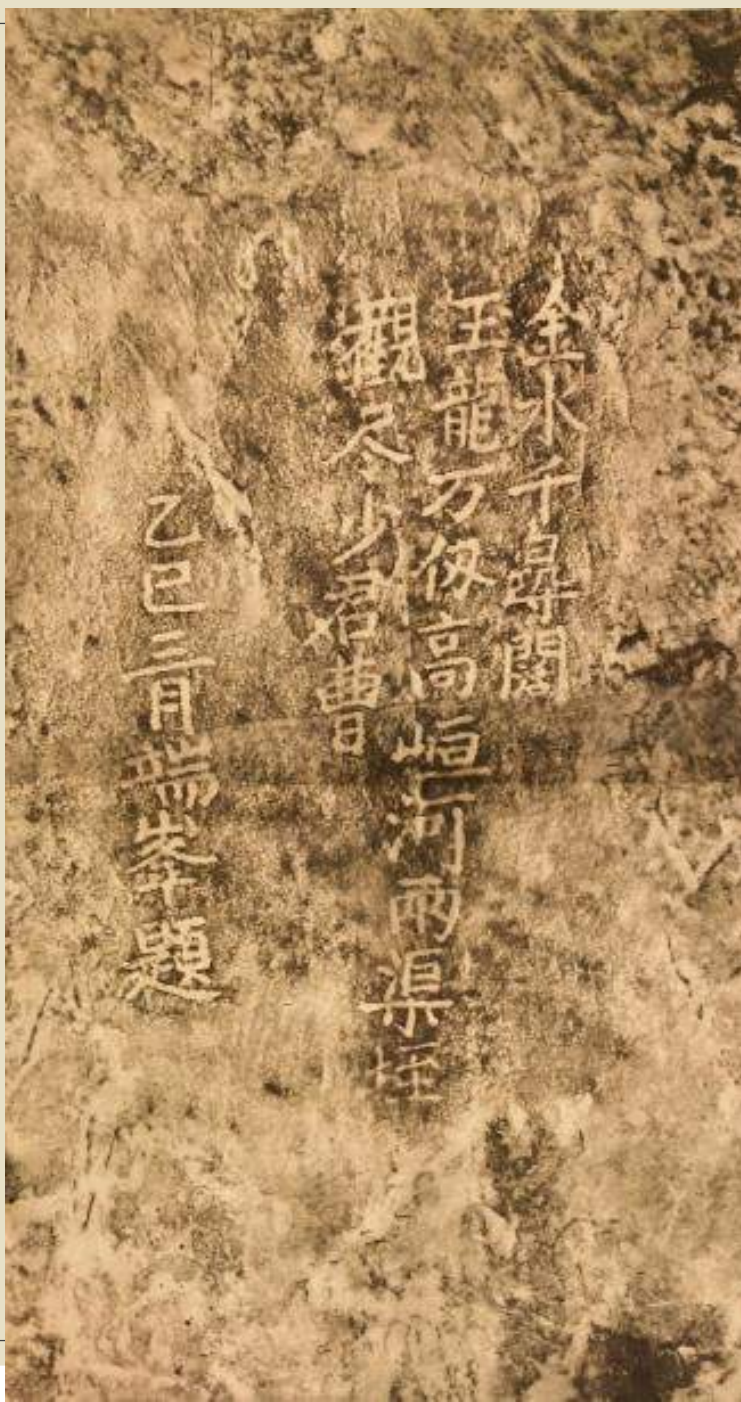 金水千尋闊
玉龍万仭高峘河兩渠
觀尽少君曹
乙巳三月端峯題